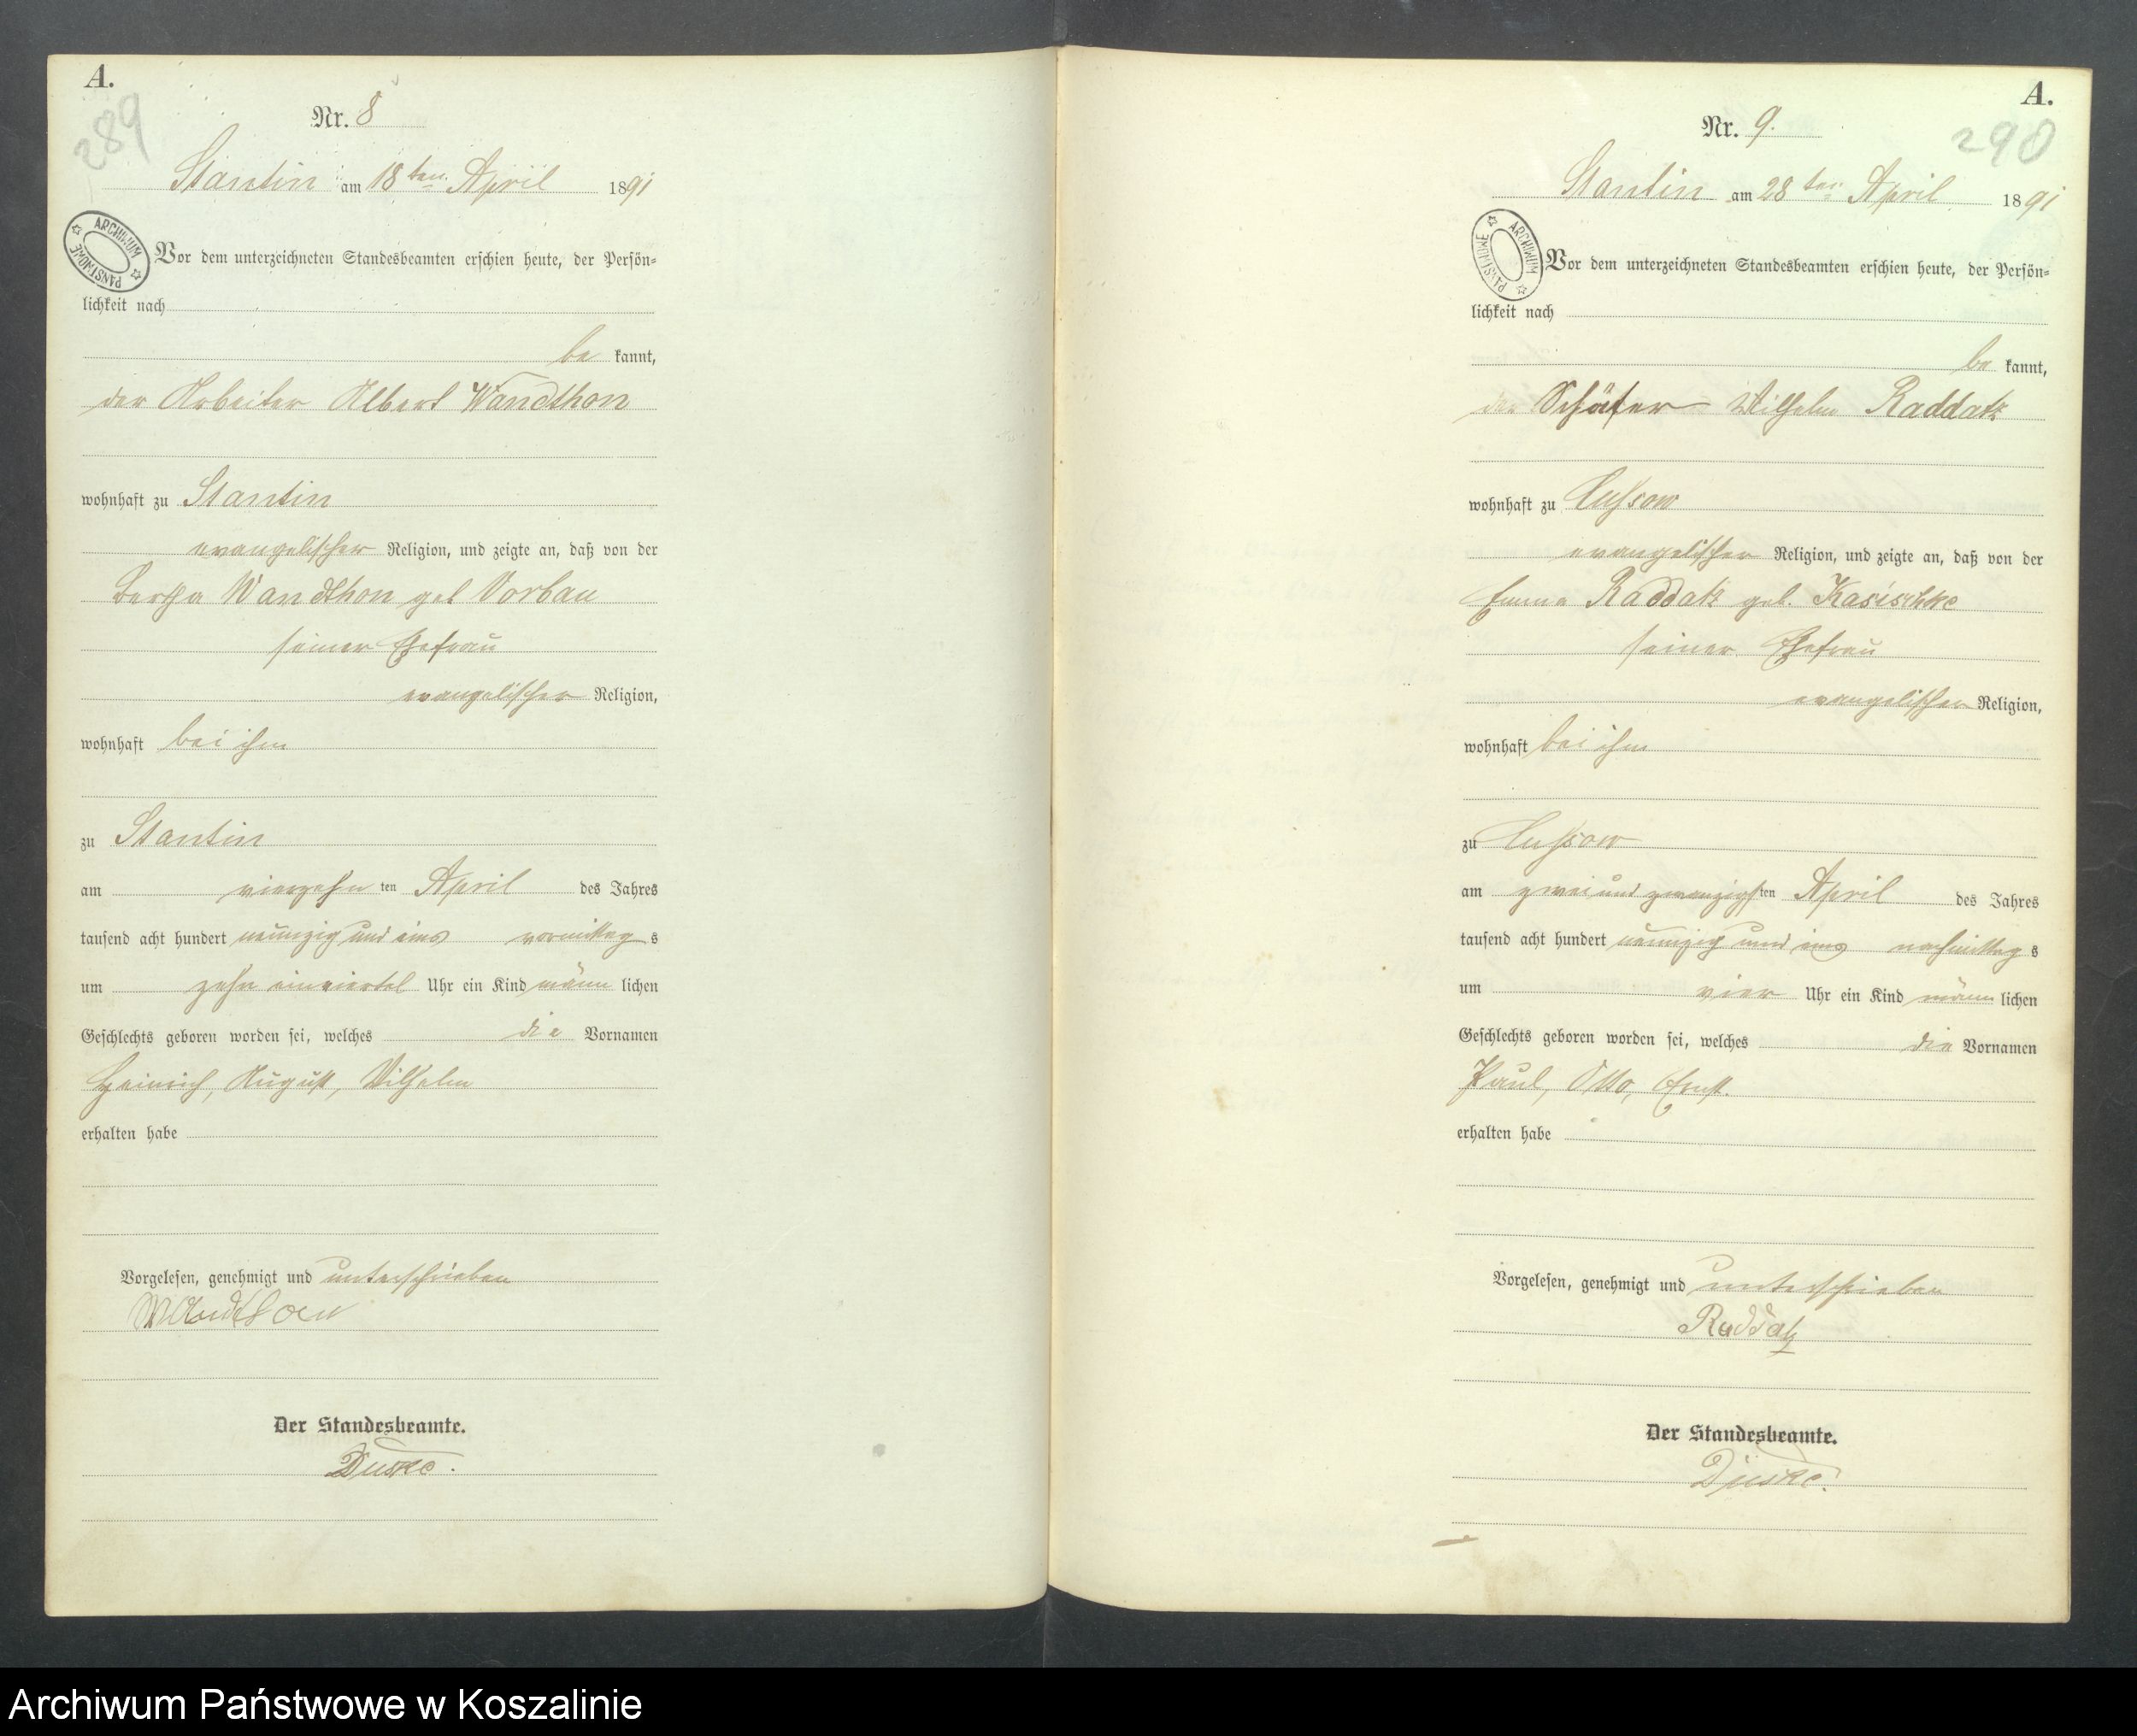 A.
289
Nr. 8
Stantin am 18ten April 1891
ARCHIWUM PAŃSTWOWE
Vor dem unterzeichneten Standesbeamten erschien heute, der Persön=
lichkeit nach
be kannt,
der Arbeiter Albert Wandthon
wohnhaft zu Stantin
evangelischer Religion, und zeigte an, daß von der
Bertha Wandthon geb Vorbau
seiner Ehefrau
evangelischer Religion,
wohnhaft bei ihm
zu Stantin
am vierzehn ten April des Jahres
tausend acht hundert neunzig und eins vormittag s
um zehn einviertel Uhr ein Kind männ lichen
Geschlechts geboren worden sei, welches die Vornamen
Heinrich, August, Wilhelm
erhalten habe
Vorgelesen, genehmigt und unterschrieben
Wandthon
Der Standesbeamte.
A.
290
Nr. 9.
Stantin am 28ten April 1891
ARCHIWUM PAŃSTWOWE
Vor dem unterzeichneten Standesbeamten erschien heute, der Persön=
lichkeit nach
be kannt,
der Schäfer Wilhelm Raddatz
wohnhaft zu
evangelischer Religion, und zeigte an, daß von der
Emma Raddatz geb. Kasischke
seiner Ehefrau
evangelischer Religion,
wohnhaft bei ihm
zu
am zwei und zwanzigsten April des Jahres
tausend acht hundert neunzig und eins nachmittag s
um vier Uhr ein Kind männ lichen
Geschlechts geboren worden sei, welches die Vornamen
Paul, Otto, Ernst.
erhalten habe
Vorgelesen, genehmigt und unterschrieben
Raddatz
Der Standesbeamte.
Archiwum Państwowe w Koszalinie